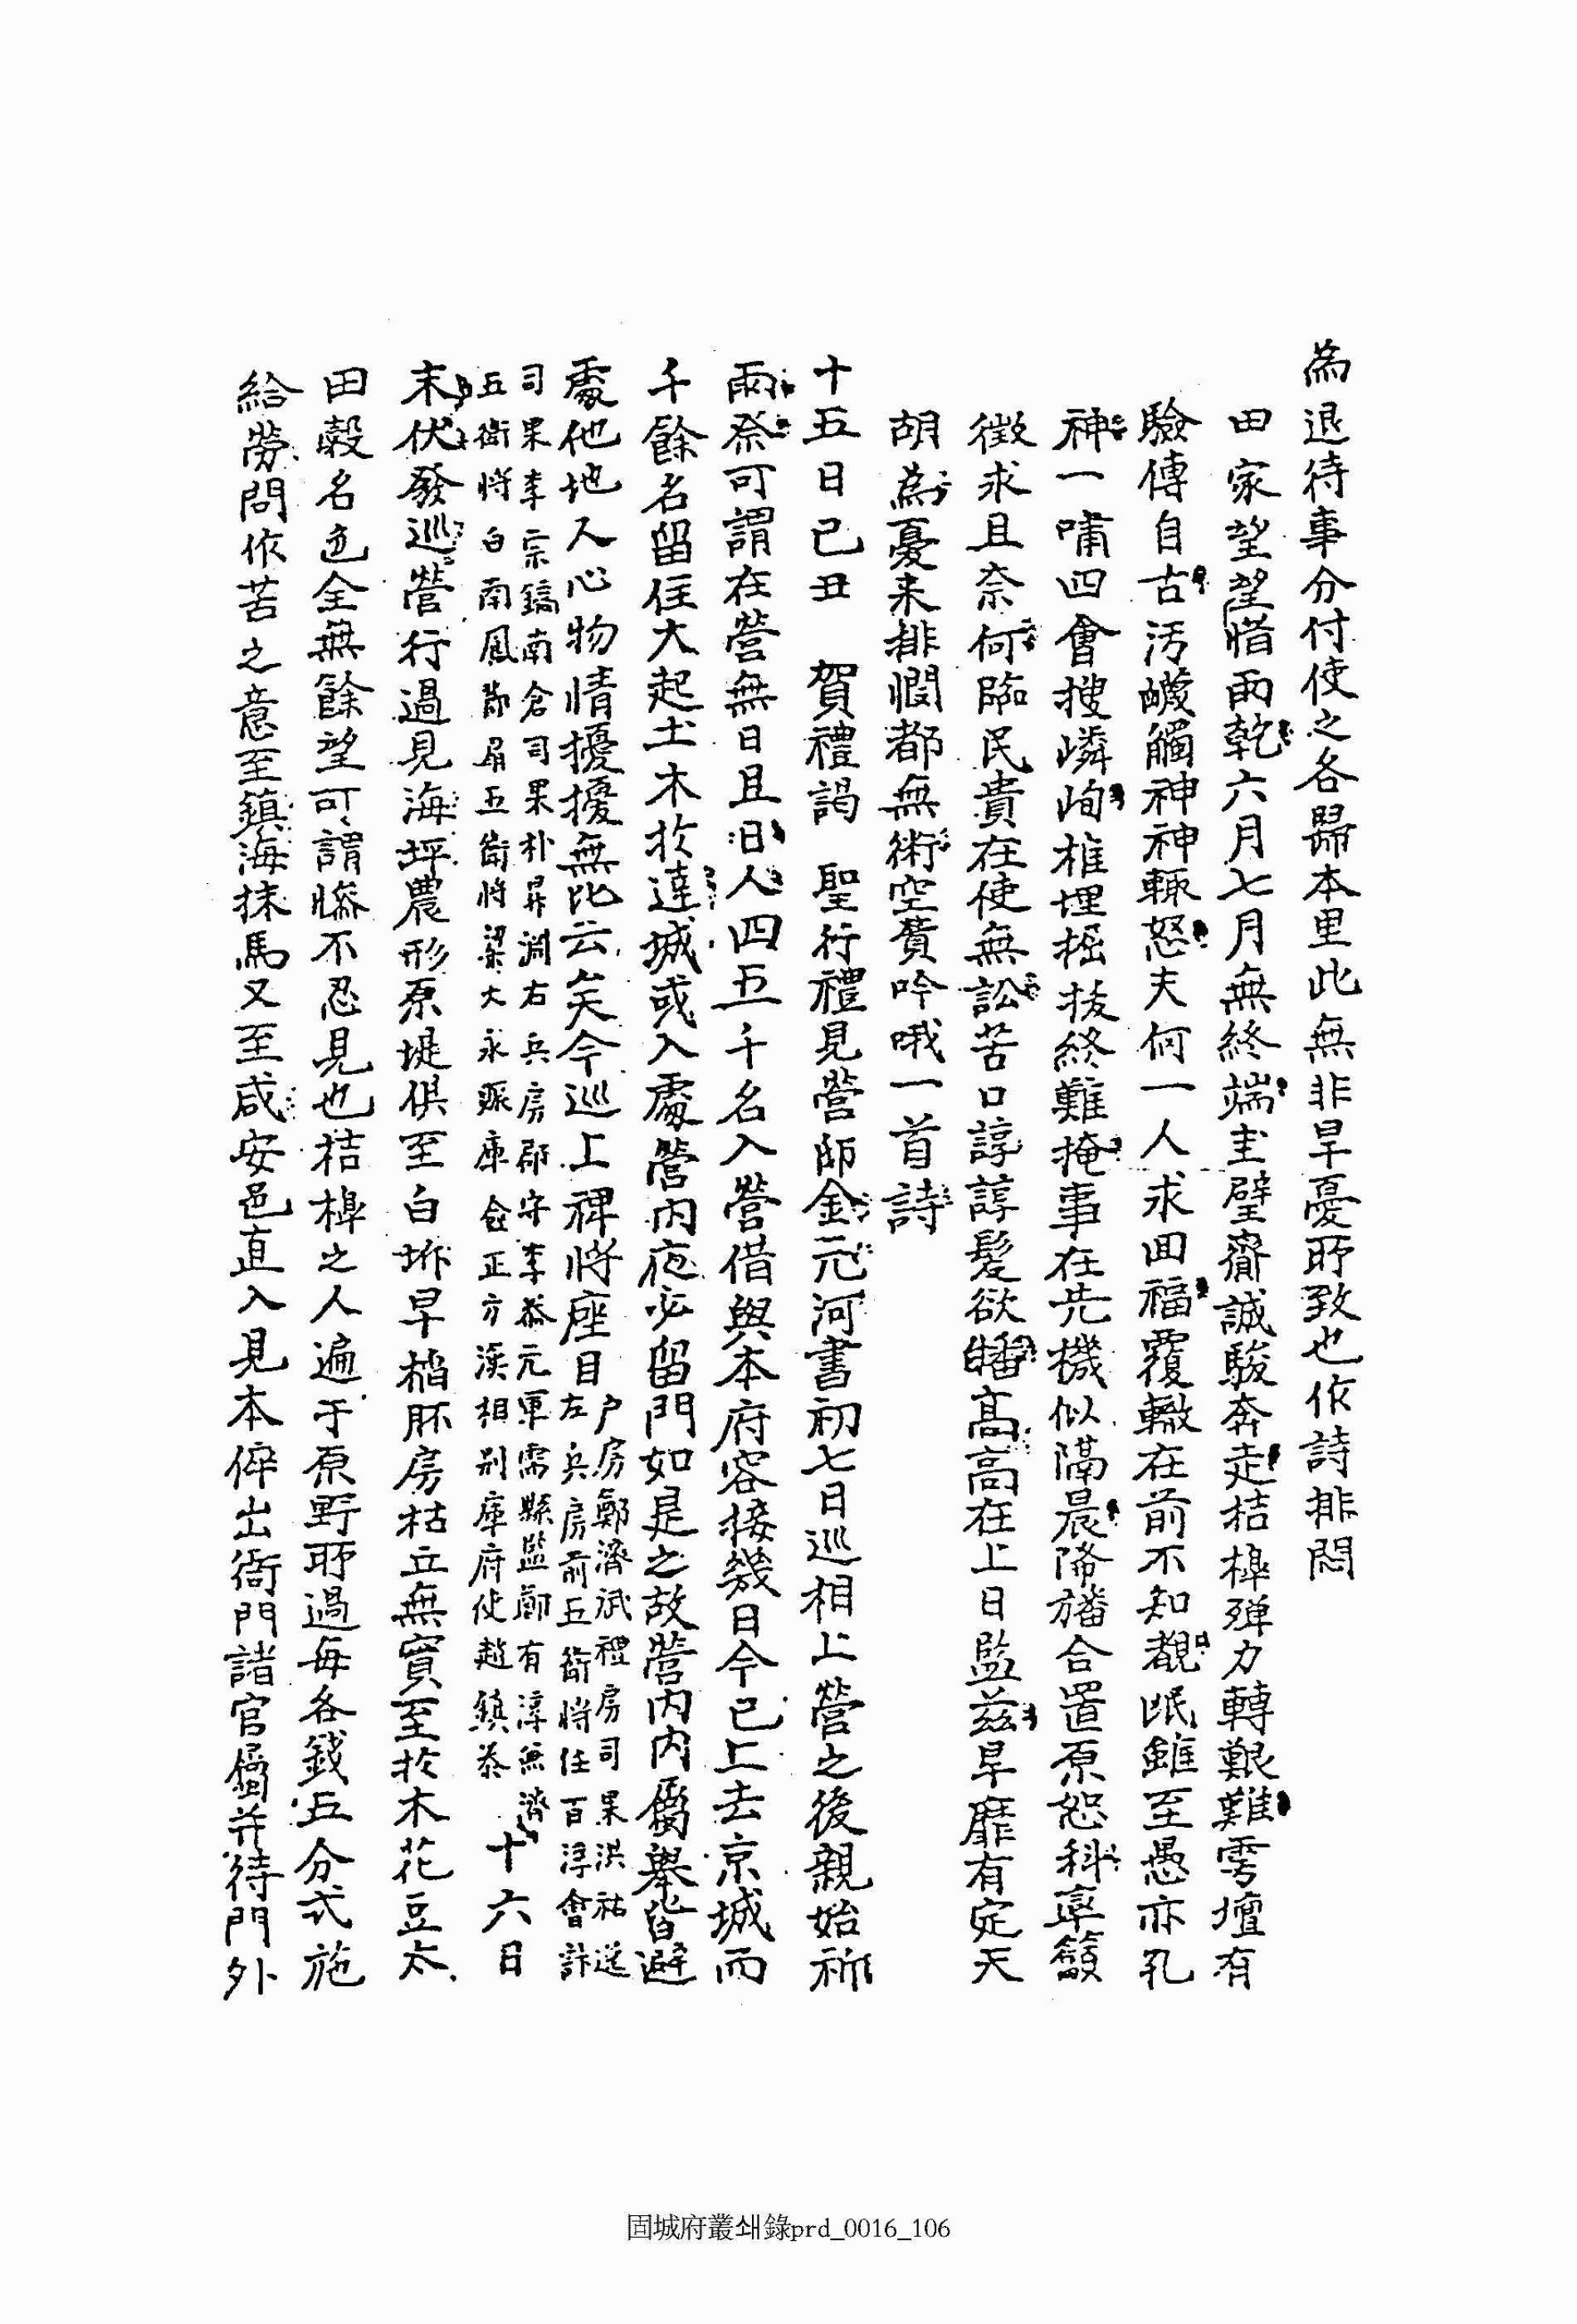 為退待事分付使之各歸本里此無非旱憂所致也作詩排悶
田家望望惜雨乾六月七月無終端圭璧齋誠駿奔走桔槔殫力轉艱難雩壇有
驗傳自古汚衊觸神神輒怒夫何一人求回福覆轍在前不知覩氓雖至愚亦孔
神一嘯四會搜嶙峋椎埋掘拔終難掩事在先機似隔晨降旛合置原恕科率籲
徵求且奈何臨民貴在使無訟苦口諄諄髮欲皤高高在上日監茲旱靡有定天
胡為憂来排悶都無術空費吟哦一首詩
十五日己丑 賀禮謁 聖行禮見營師金元河書初七日巡相上營之後親始祈
雨祭可謂在營無日且曰人四五千名入營借與本府容接幾日今已上去京城而
千餘名留住大起土木於達城或入處營內庖必留門如是之故營內內屬擧皆避
處他地人心物情擾擾無比云矣今巡上裨將座目 戶房鄭濟斌禮房司果洪祐送
左兵房前五衛將任百淳會計
司果李宗鎬南倉司果朴昇淵右兵房郡守李泰元軍需縣監鄭有淳無濟
五衛將白南鳳節扇五衛將梁大永賑庫僉正方漢相別庫府使趙鎮泰 十六日
末伏發巡營行過見海坪農形原堤俱至白坼旱稻胚房枯立無實至於木花豆太
田穀名色全無餘望可謂慘不忍見也桔槔之人遍于原野所過每各錢五分式施
給勞問作苦之意至鎭海抹馬又至咸安邑直入見本倅出衙門諸官屬並待門外
固城府叢쇄錄prd_0016_106